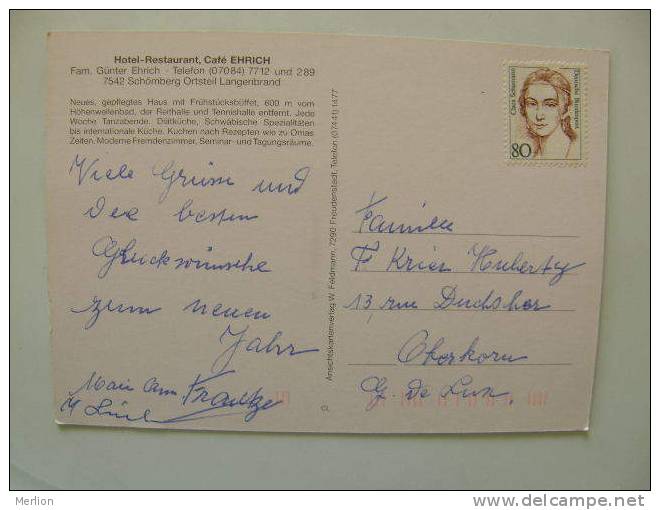 Hotel-Restaurant, Café EHRICH
Fam. Günter Ehrich - Telefon (07084) 7712 und 289
7542 Schömberg Ortsteil Langenbrand
Neues, gepflegtes Haus mit Frühstücksbüffet, 600 m vom
Höhenwellenbad, der Reithalle und Tennishalle entfernt. Jede
Woche Tanzabende. Diätküche, Schwäbische Spezialitäten
bis internationale Küche. Kuchen nach Rezepten wie zu Omas
Zeiten. Moderne Fremdenzimmer, Seminar- und Tagungsräume.
Viele Grüsse und
die besten
Glückswünsche
zum neuen
Jahr
Ansichtskartenverlag W. Feldmann, 7290 Freudenstadt, Telefon (07441) 1477
Clara Schumann
Deutsche Bundespost
80
Familie
F. Krier Huberty
13, rue Duchscher
Oberkorn
G. de Lux.
Merlion
www.delcampe.net